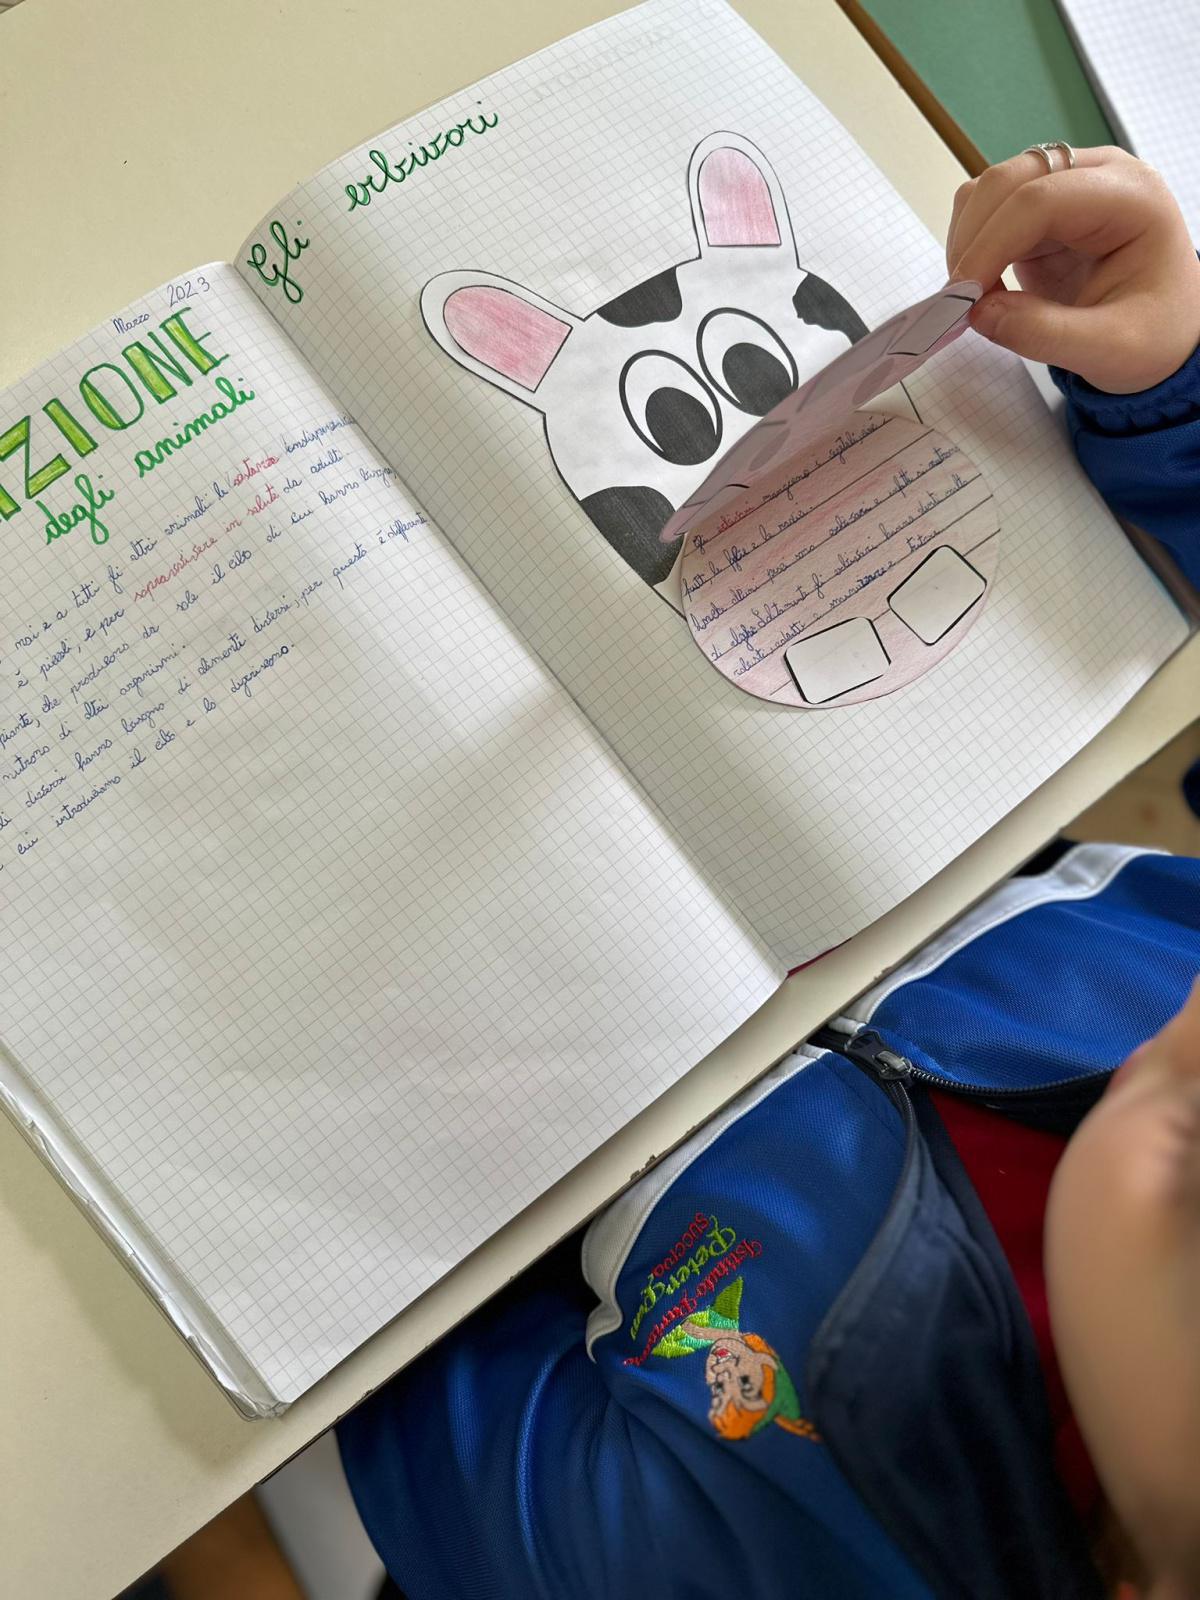 Marzo 2023
ZIONE
degli animali
noi e a tutti gli altri animali le sostanze indispensabili
è piccoli, e per sopravvivere in salute da adulti.
piante, che producono da sole il cibo di cui hanno bisogno,
nutrono di altri organismi.
diversi hanno bisogno di alimenti diversi, per questo è differente
cui introduciamo il cibo e lo digeriscono.
Gli erbivori
Gli erbivori mangiano i vegetali, cioè i
frutti, le foglie e le radici.
erbivori e infatti si nutrono
di alghe. Solitamente gli erbivori hanno denti molto
robusti, adatti a sminuzzare e triturare.
Istituto Paritario
Peter Pan
SUCCIVO